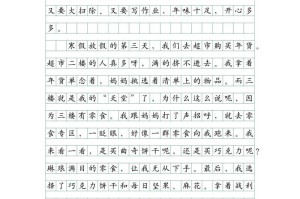 又要大扫除，又要写作业，年味十足，开心多
多。
寒假放假的第三天，我们去超市购买年货。
超市二楼的人真多呀，满的挤不进去。我拿着
年货单念着，妈妈挑选着清单上的物品。而三
楼就是我的“天堂”了。为什么这么说呢，因
为三楼有零食。我跟妈妈打了声招呼，就去零
食专区，一眨眼，好像一群零食向我跑来。我
来看一看，是买曲奇饼干呢，还是买巧克力呢？
琳琅满目的零食，让我无从下手。最后，我选
择了巧克力饼干和每日坚果、麻花。拿着战利